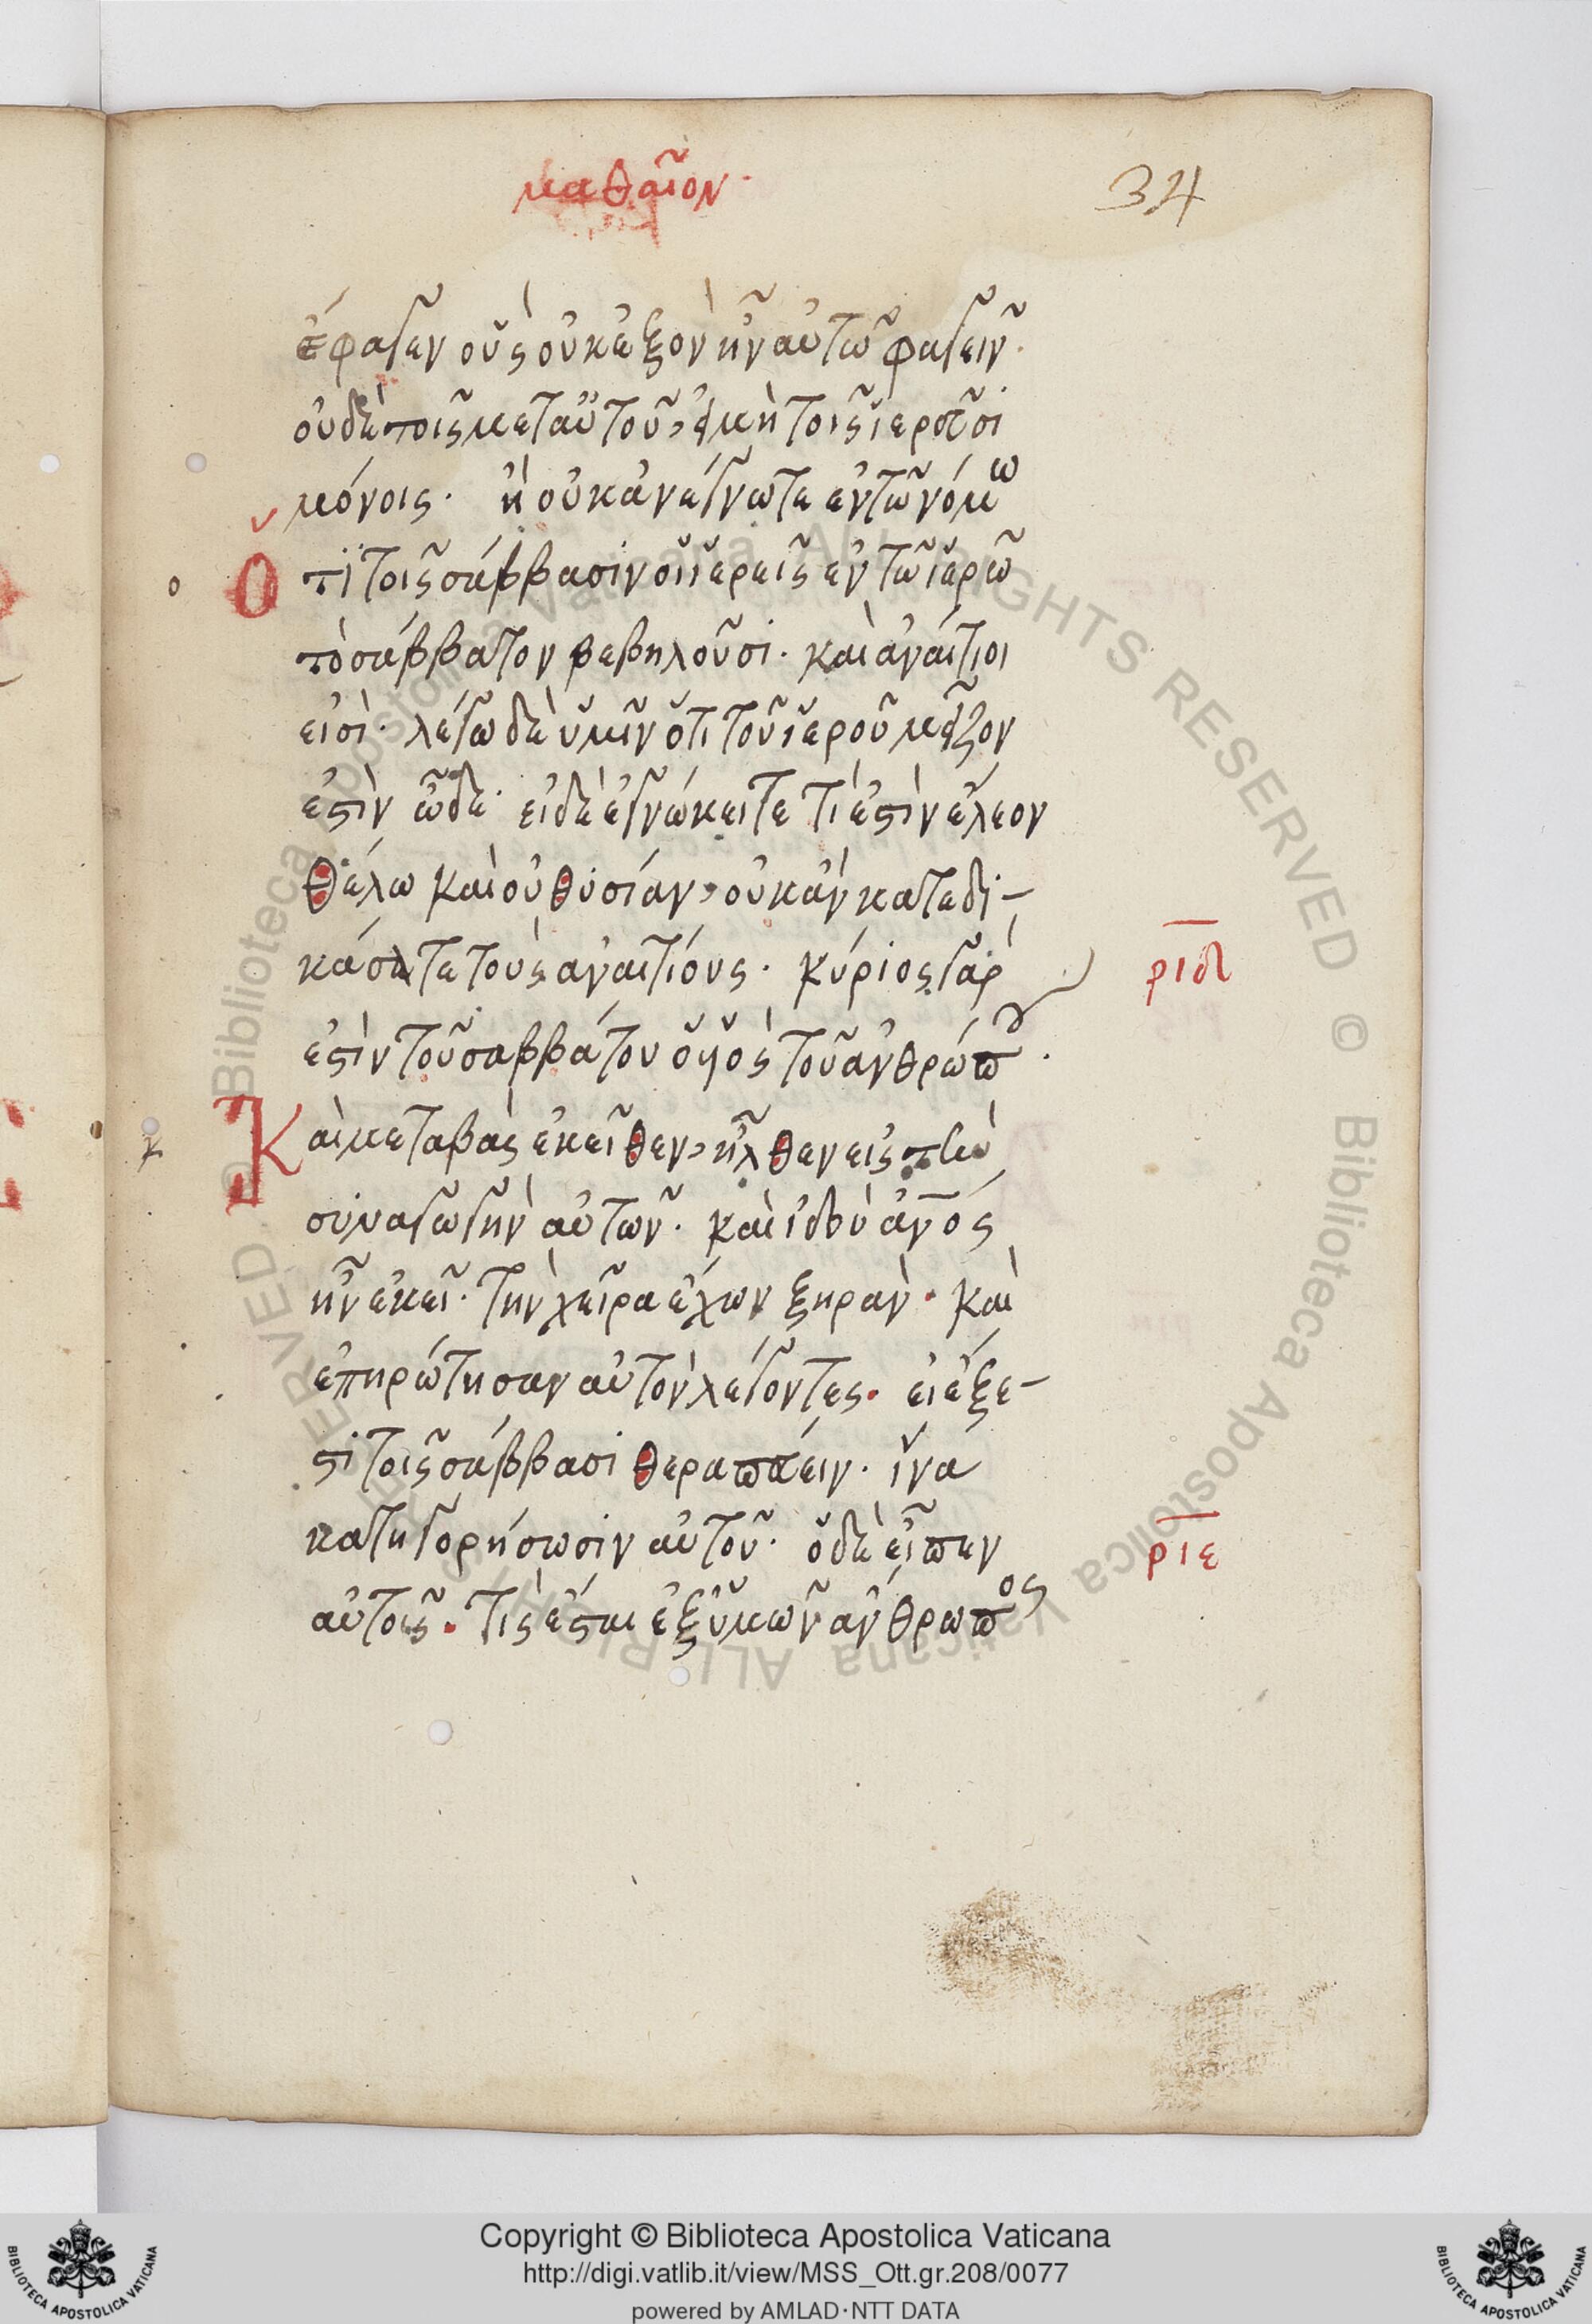 μαθαῖον·
34
ἔφαγεν οὓς οὐκ ἐξὸν ἦν αὐτῶ φαγεῖν·
οὐδὲ τοῖς μετ αὐτοῦ, εἰ μὴ τοῖς ἱερεῦσι
μόνοις· ἢ οὐκ ἀνέγνωτε ἐν τῶ νόμω
ο Ο τι τοῖς σάββασιν οἱ ἱερεῖς ἐν τῶ ἱερῶ
τὸ σάββατον βεβηλοῦσι· καὶ ἀναίτιοι
εἰσὶ· λέγω δὲ ὑμῖν ὅτι τοῦ ἱεροῦ μεῖζον
ἐστὶν ὧδε· εἰ δὲ ἐγνώκειτε τί ἐστὶν ἔλεον
θέλω καὶ οὐ θυσίαν, οὐκ ἂν κατεδι-
κάσατε τοὺς ἀναιτίους· κύριος γάρ
ριδ
ἐστὶν τοῦ σαββάτου ὁ υἱὸς τοῦ ἀνθρώπου·
κ Καὶ μεταβὰς ἐκεῖθεν, ἦλθεν εἰς τὴν
συναγωγὴν αὐτῶν· καὶ ἰδοὺ ἀνος
ἦν ἐκεῖ· τὴν χεῖρα ἔχων ξηρὰν· καὶ
ἐπηρώτησαν αὐτὸν λέγοντες· εἰ ἔξε-
στι τοῖς σάββασι θεραπεύειν· ἵνα
κατηγορήσωσιν αὐτοῦ· ὁ δὲ εἶπεν
ριε
αὐτοῖς· τίς ἔσται ἐξ ὑμῶν ἄνθρωπος
© Biblioteca Apostolica Vaticana ALL RIGHTS RESERVED © Biblioteca Apostolica Vaticana ALL RIGHTS RESERVED
Copyright © Biblioteca Apostolica Vaticana
http://digi.vatlib.it/view/MSS_Ott.gr.208/0077
powered by AMLAD·NTT DATA
BIBLIOTECA APOSTOLICA VATICANA
BIBLIOTECA APOSTOLICA VATICANA